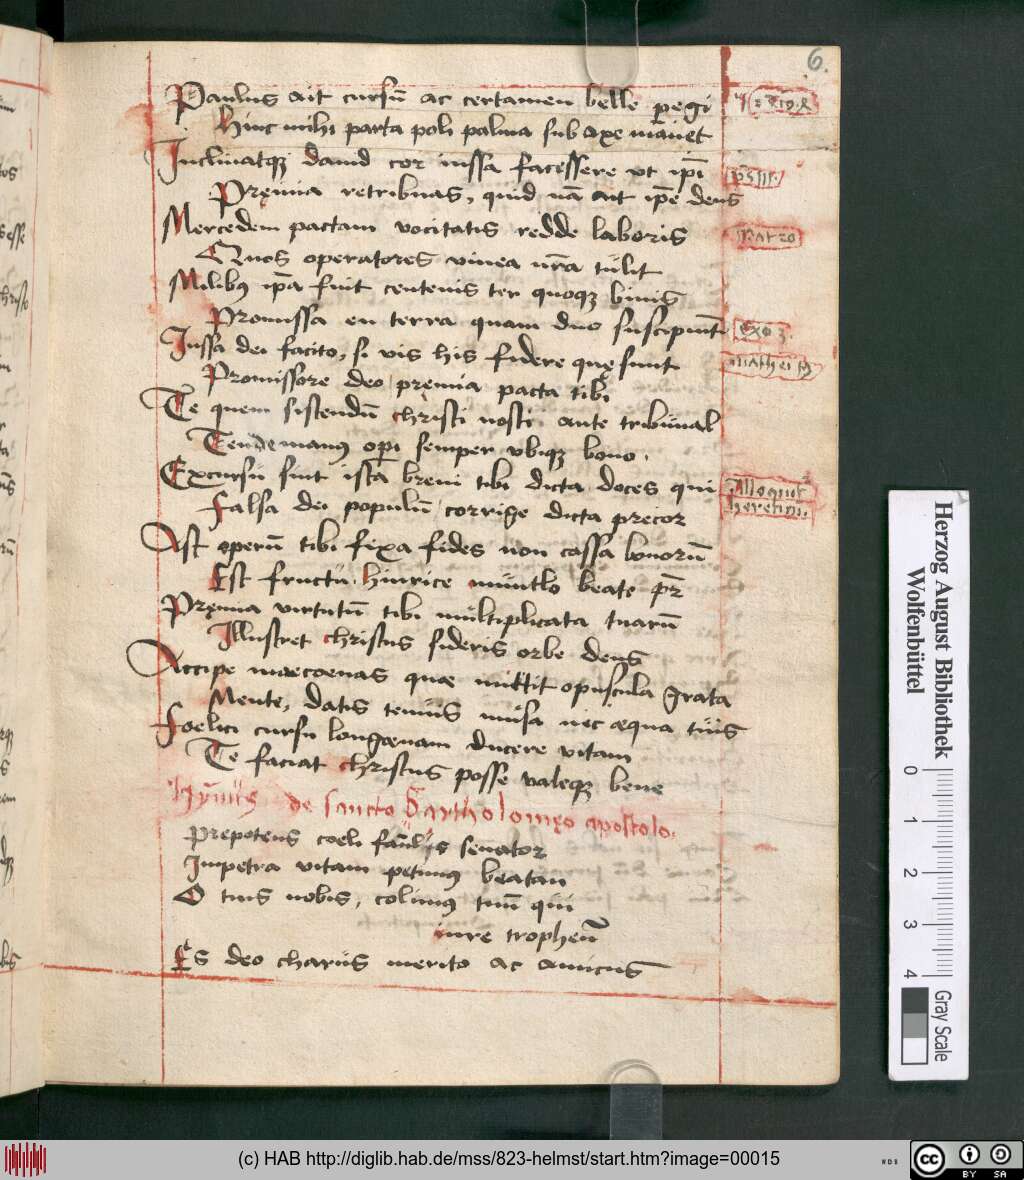 6.
Paulus ait cursū ac certamen belle peregi
Hinc mihi parta poli palma sub axe manet
Inclinatqꝫ dauid cor iussa facessere ut ip̄i
Pręmia retribuas, quid nā ait ip̄e deus
psal
Mercedem pactam vocitatis redde laboris
Mat 20
Quos operatores vinea nr̄a tulit
Milibꝰ ip̄a fuit centenis ter quoqꝫ binis
Promissa en terra quam duo suscipiunt
Exo 3.
Iussa dei facito, si vis his fidere quę sunt
Mathei 19
Promissore deo pręmia pacta tibi
Te quem sistendū christi nosti ante tribunal
Tende manꝰ opi semper vbiqꝫ bono.
Excursū sint ista breui tibi dicta doces qui
Alloquit
hereticū.
Falsa dei populū corrige dicta precor
Ast operū tibi fixa fides non cassa bonorū
Est fructu hinrice muntlo beate pr̄
Pręmia virtutū tibi multiplicata tuarū
Illustret christus sideris orbe deus
Accipe maecoenas quae mittit opuscula grata
Mente, datis tenuis musa nec aequa tuis
Foelici cursu longaeuam ducere vitam
Te faciat christus posse valeqꝫ bene
Hymnus de sancto Bartholomęo apostolo.
Prepotens coeli senator
Impetra vitam petimꝰ beatam
O tuis nobis, colimꝰ tuū qui
iure tropheū
Es deo charus merito ac amicus
Herzog August Bibliothek
Wolfenbüttel
0 1 2 3 4
Gray Scale
(c) HAB http://diglib.hab.de/mss/823-helmst/start.htm?image=00015
cc BY SA